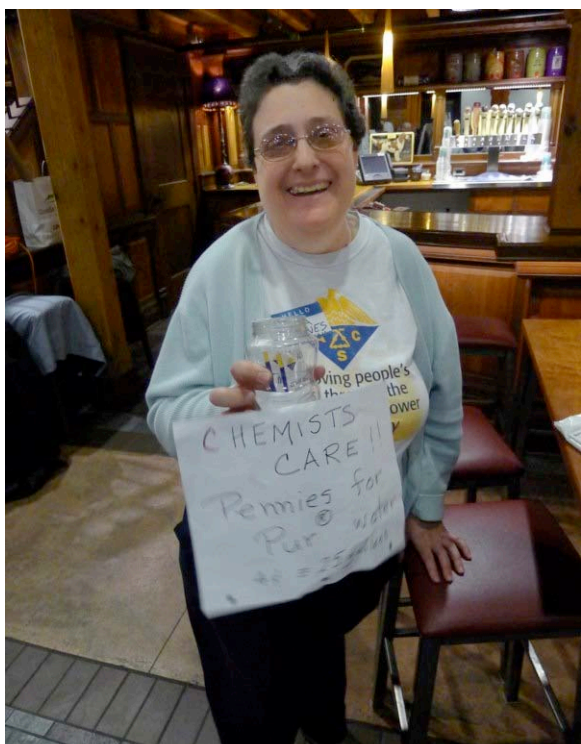 HELLO
NES
A C
S
ving people's
the
ower
CHEMISTS
CARE!!
Pennies for
Pur® water
= 25